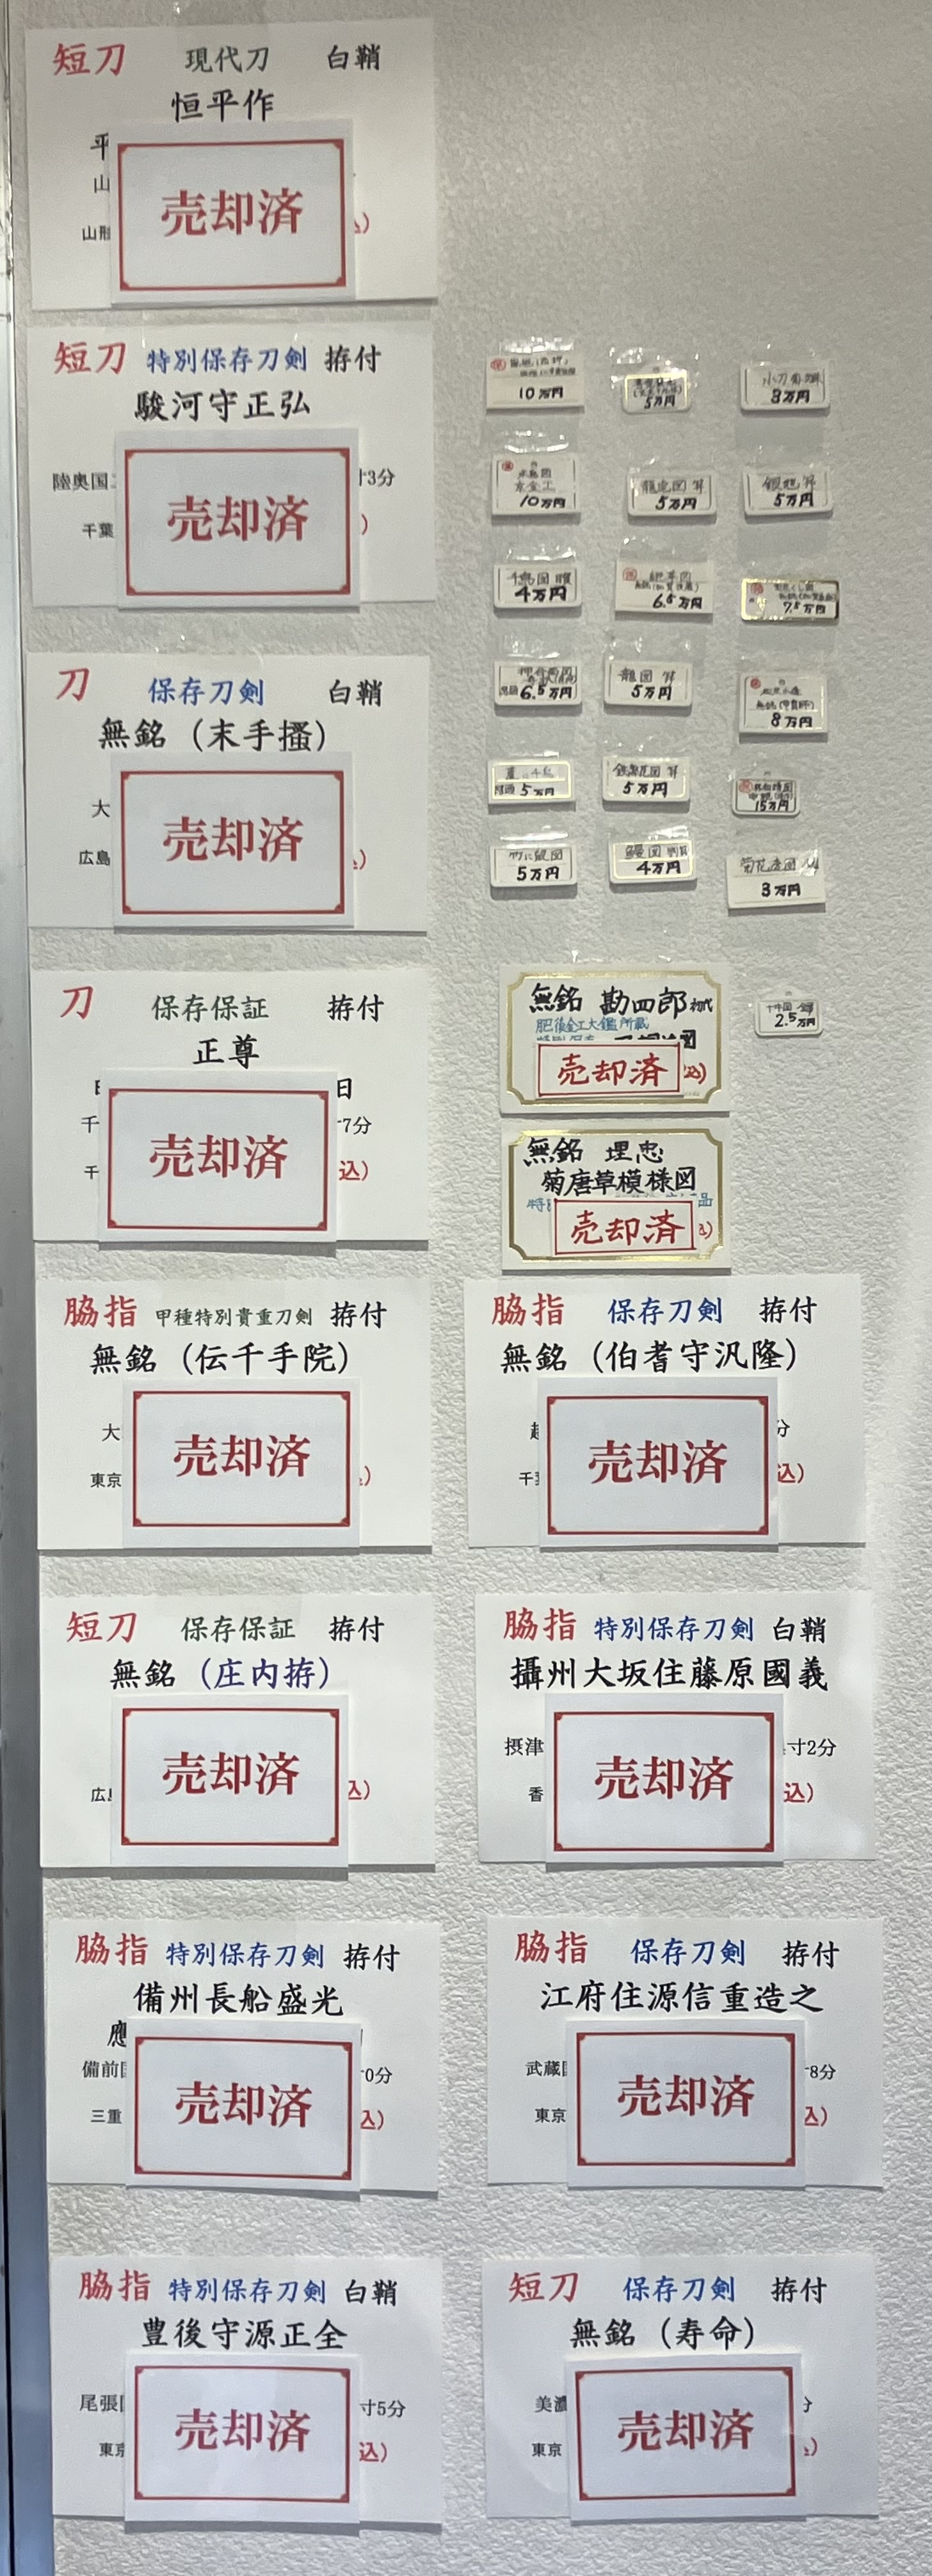 短刀 現代刀 白鞘
恒平作
平
山
山形
売却済
短刀 特別保存刀剣 拵付
駿河守正弘
陸奥国 寸3分
千葉
売却済
刀 保存刀剣 白鞘
無銘（末手掻）
大
広島
売却済
刀 保存保証 拵付
正尊
日
千 7分
千 込）
売却済
脇指 甲種特別貴重刀剣 拵付
無銘（伝千手院）
大
東京
売却済
短刀 保存保証 拵付
無銘（庄内拵）
広 込）
売却済
脇指 特別保存刀剣 拵付
備州長船盛光
應
備前国 寸0分
三重 込）
売却済
脇指 特別保存刀剣 白鞘
豊後守源正全
尾張国 寸5分
東京 込）
売却済
10万円
5万円
小刀
3万円
京金工
10万円
龍虎図
5万円
5万円
千鳥図
4万円
6.5万円
7.5万円
6.5万円
龍図
5万円
8万円
5万円
5万円
15万円
竹に鼠図
5万円
鰻図
4万円
菊花
3万円
2.5万円
無銘 勘四郎 初代
肥後金工大鑑所蔵
図
売却済
無銘 埋忠
菊唐草模様図
特 品
売却済
脇指 保存刀剣 拵付
無銘（伯耆守汎隆）
越 分
千葉 込）
売却済
脇指 特別保存刀剣 白鞘
攝州大坂住藤原國義
摂津 寸2分
香 込）
売却済
脇指 保存刀剣 拵付
江府住源信重造之
武蔵国 寸8分
東京 込）
売却済
短刀 保存刀剣 拵付
無銘（寿命）
美濃 分
東京
売却済